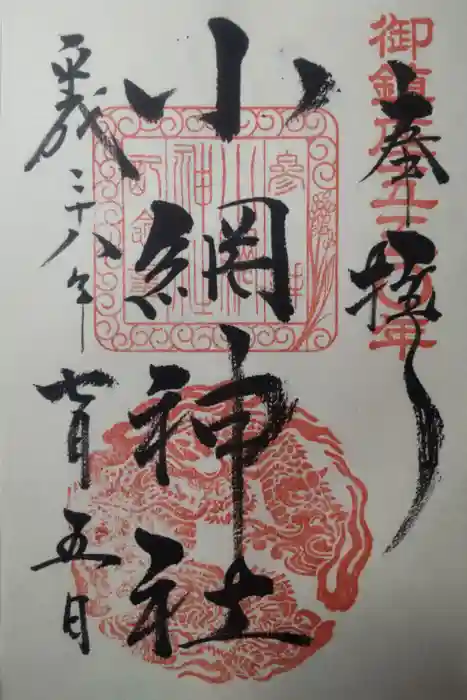 御鎮座五百五十年
奉拝
小網神社
平成二十八年七月五日